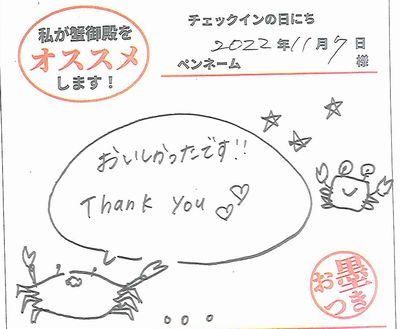 私が蟹御殿を
オススメ
します！
チェックインの日にち
2022年11月7日
ペンネーム
様
おいしかったです!!
Thank You
お墨つき